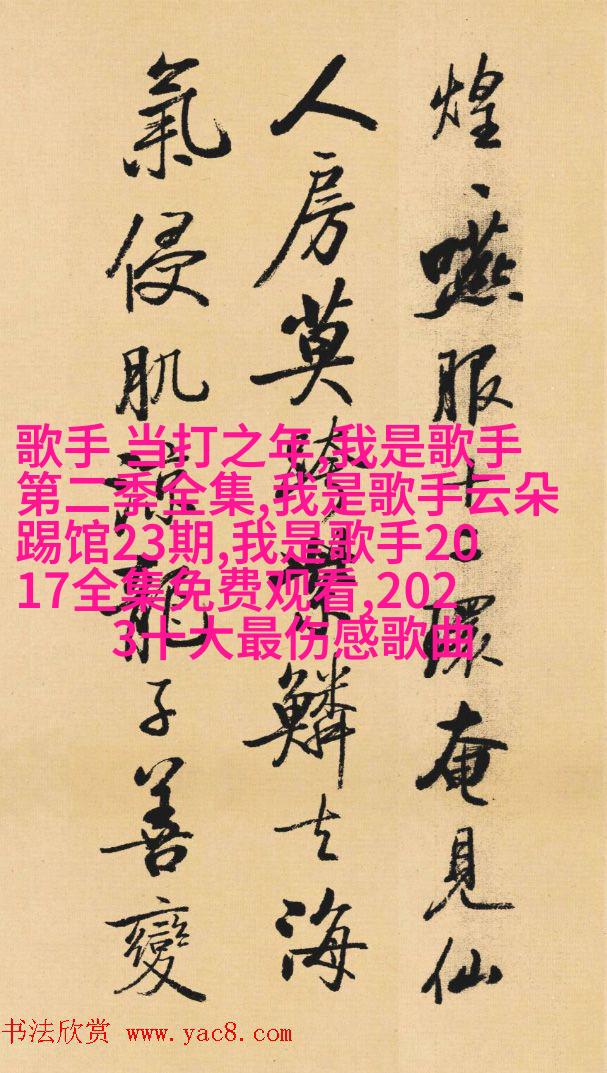 煌、服十環奄見仙
人房莫鱗去海
氣侵肌涼龍子善變
歌手 当打之年,我是歌手
第二季全集,我是歌手云朵
踢馆23期,我是歌手20
17全集免费观看,202
3十大最伤感歌曲
书法欣赏 www.yac8.com